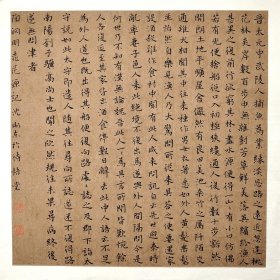 晉太元中武陵人捕魚為業緣溪忘路之遠近忽逢桃
花林夾岸數百步中無雜樹芳草鮮美落英繽紛漁人
甚異之復前行欲窮其林林盡水源便得一山山有小口仿佛
若有光便舍船從口入初極狹纔通人復行數十步豁然
開朗土地平曠屋舍儼然有良田美池桑竹之屬阡陌交
通雞犬相聞其中往來種作男女衣著悉如外人黃髮垂髫
並怡然自樂見漁人乃大驚問所從來具答之便要還家
設酒殺雞作食村中聞有此人咸來問訊自云先世避秦時
亂率妻子邑人來此絕境不復出焉遂與外人間隔問今是
何世乃不知有漢無論魏晉此人一一為具言所聞皆歎惋餘
人各復延至其家皆出酒食停數日辭去此中人語云不足
為外人道也既出得其船便扶向路處處誌之及郡下詣太
守說如此太守即遣人隨其往尋向所誌遂迷不復得路
南陽劉子驥高尚士也聞之欣然規往未果尋病終後
遂無問津者
陶淵明桃花源記